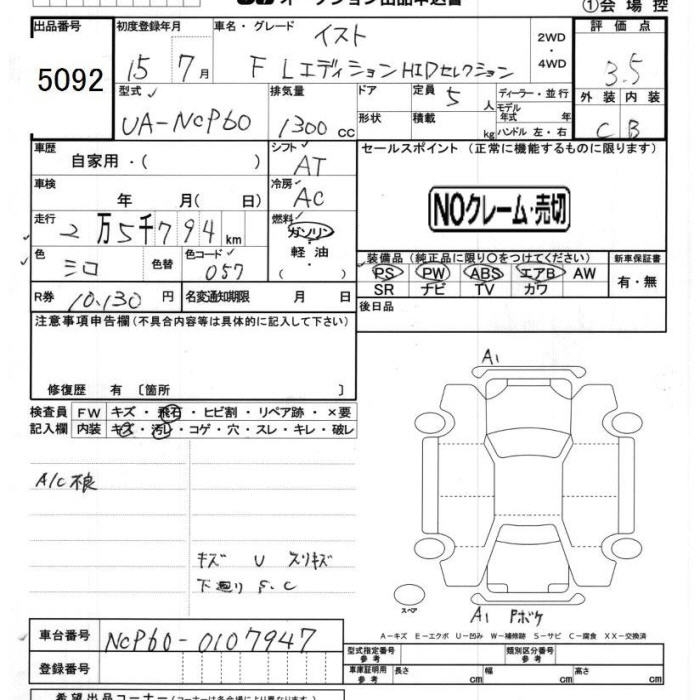 オークション出品申込書
①会場控
出品番号
5092
初度登録年月
15 7月
車名・グレード
イスト
F Lエディション HIDセレクション
2WD
・
4WD
評価点
3.5
外装 内装
C B
型式
UA-NCP60
排気量
1300 cc
ドア
定員 5 人
形状
積載 kg
ディーラー・並行
モデル年式 年
ハンドル 左・右
車歴
自家用・( )
シフト
AT
車検
年 月( 日)
冷房
AC
走行
2万5千794km
燃料
ガソリン
軽油
( )
色
シロ
色替
色コード
057
R券 10,130 円
名変通知期限 月 日
セールスポイント (正常に機能するものに限ります)
NOクレーム・売切
装備品(純正品に限り○をつけてください)
PS PW ABS エアB AW
SR ナビ TV カワ
新車保証書
有・無
後日品
注意事項申告欄(不具合内容等は具体的に記入して下さい)
修復歴 有 〔箇所 〕
検査員 記入欄
FW キズ・飛石・ヒビ割・リペア跡・×要
内装 キズ・汚レ・コゲ・穴・スレ・キレ・破レ
A/C不良
キズ U スリキズ
下廻り S.C
A1
スペア
A1 Pボケ
A-キズ E-エクボ U-凹み W-補修跡 S-サビ C-腐食 XX-交換済
車台番号 NCP60-0107947
登録番号
型式指定番号 参考
類別区分番号 参考
車庫証明用 参考 長さ cm 幅 cm 高さ cm
希望出品コーナー(コーナーは各会場により異なります)